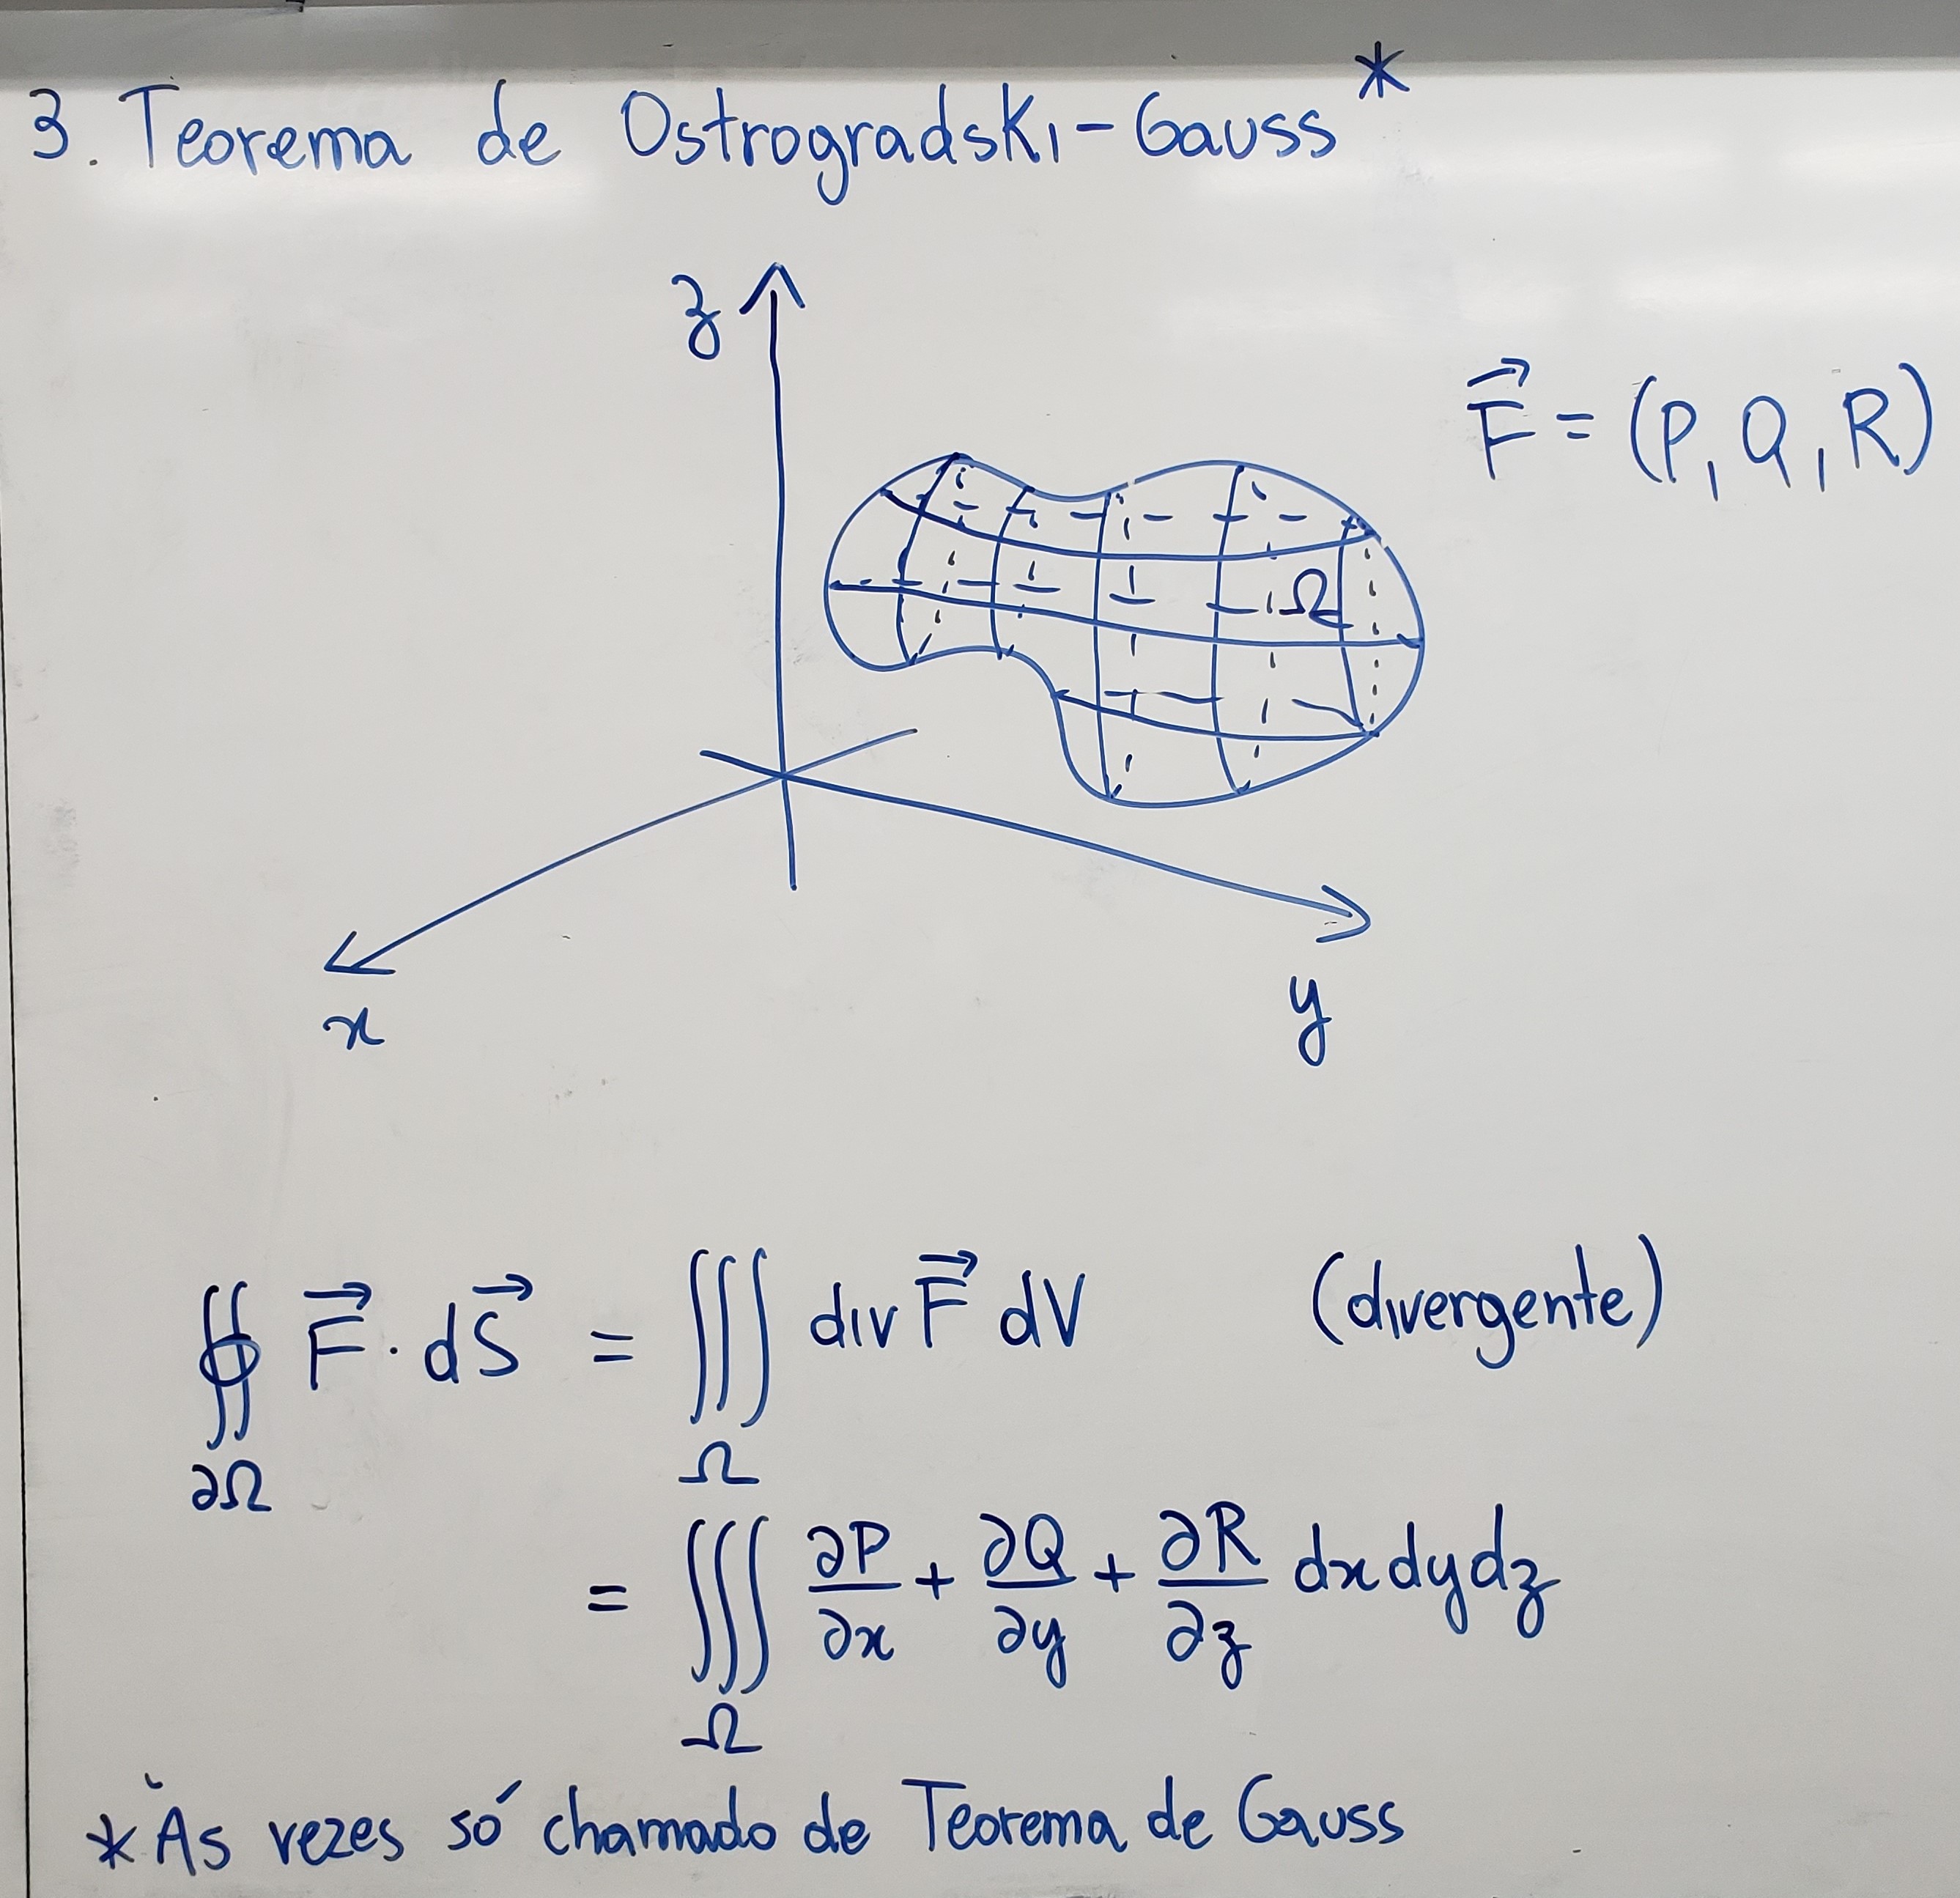 3. Teorema de Ostrogradski-Gauss*
z
F⃗ = (P, Q, R)
Ω
x
y
∯ F⃗ · dS⃗ = ∭ div F⃗ dV (divergente)
∂Ω Ω
= ∭ ∂P/∂x + ∂Q/∂y + ∂R/∂z dxdydz
Ω
*Às vezes só chamado de Teorema de Gauss